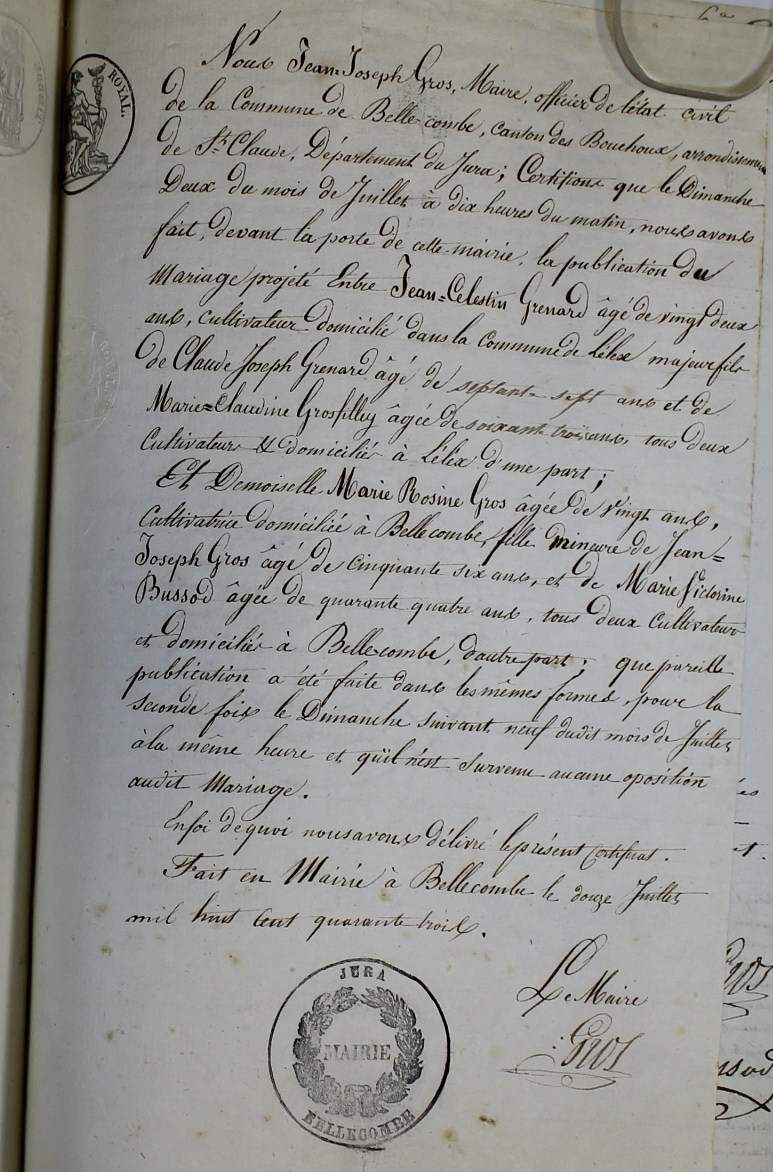 ROYAL.
Nous Jean-Joseph Gros, Maire, officier de l'état civil
de la Commune de Bellecombe, canton des Bouchoux, arrondissement
de St. Claude, Département du Jura; Certifions que le Dimanche
Deux du mois de Juillet à dix heures du matin, nous avons
fait, devant la porte de cette mairie, la publication du
Mariage projeté Entre Jean=Célestin Grenard âgé de vingt deux
ans, cultivateur domicilié dans la Commune de Lélex majeur fils
de Claude Joseph Grenard âgé de septante sept ans et de
Marie=Claudine Grosfilley âgée de soixante trois ans, tous deux
Cultivateurs & domiciliés à Lélex d'une part;
Et Demoiselle Marie Rosine Gros âgée de vingt ans,
Cultivatrice domiciliée à Bellecombe, fille mineure de Jean=
Joseph Gros âgé de cinquante six ans, et de Marie Victorine
Bussod âgée de quarante quatre ans, tous deux Cultivateurs
et domiciliés à Bellecombe, d'autre part; que pareille
publication a été faite dans les mêmes formes, pour la
seconde fois le Dimanche suivant neuf dudit mois de Juillet
à la même heure et qu'il n'est survenu aucune oposition
audit Mariage.
Enfoi de quoi nous avons délivré le présent Certificat.
Fait en Mairie à Bellecombe le douze Juillet
mil huit Cent quarante trois.
Le Maire
Gros
JURA
MAIRIE
BELLECOMBE